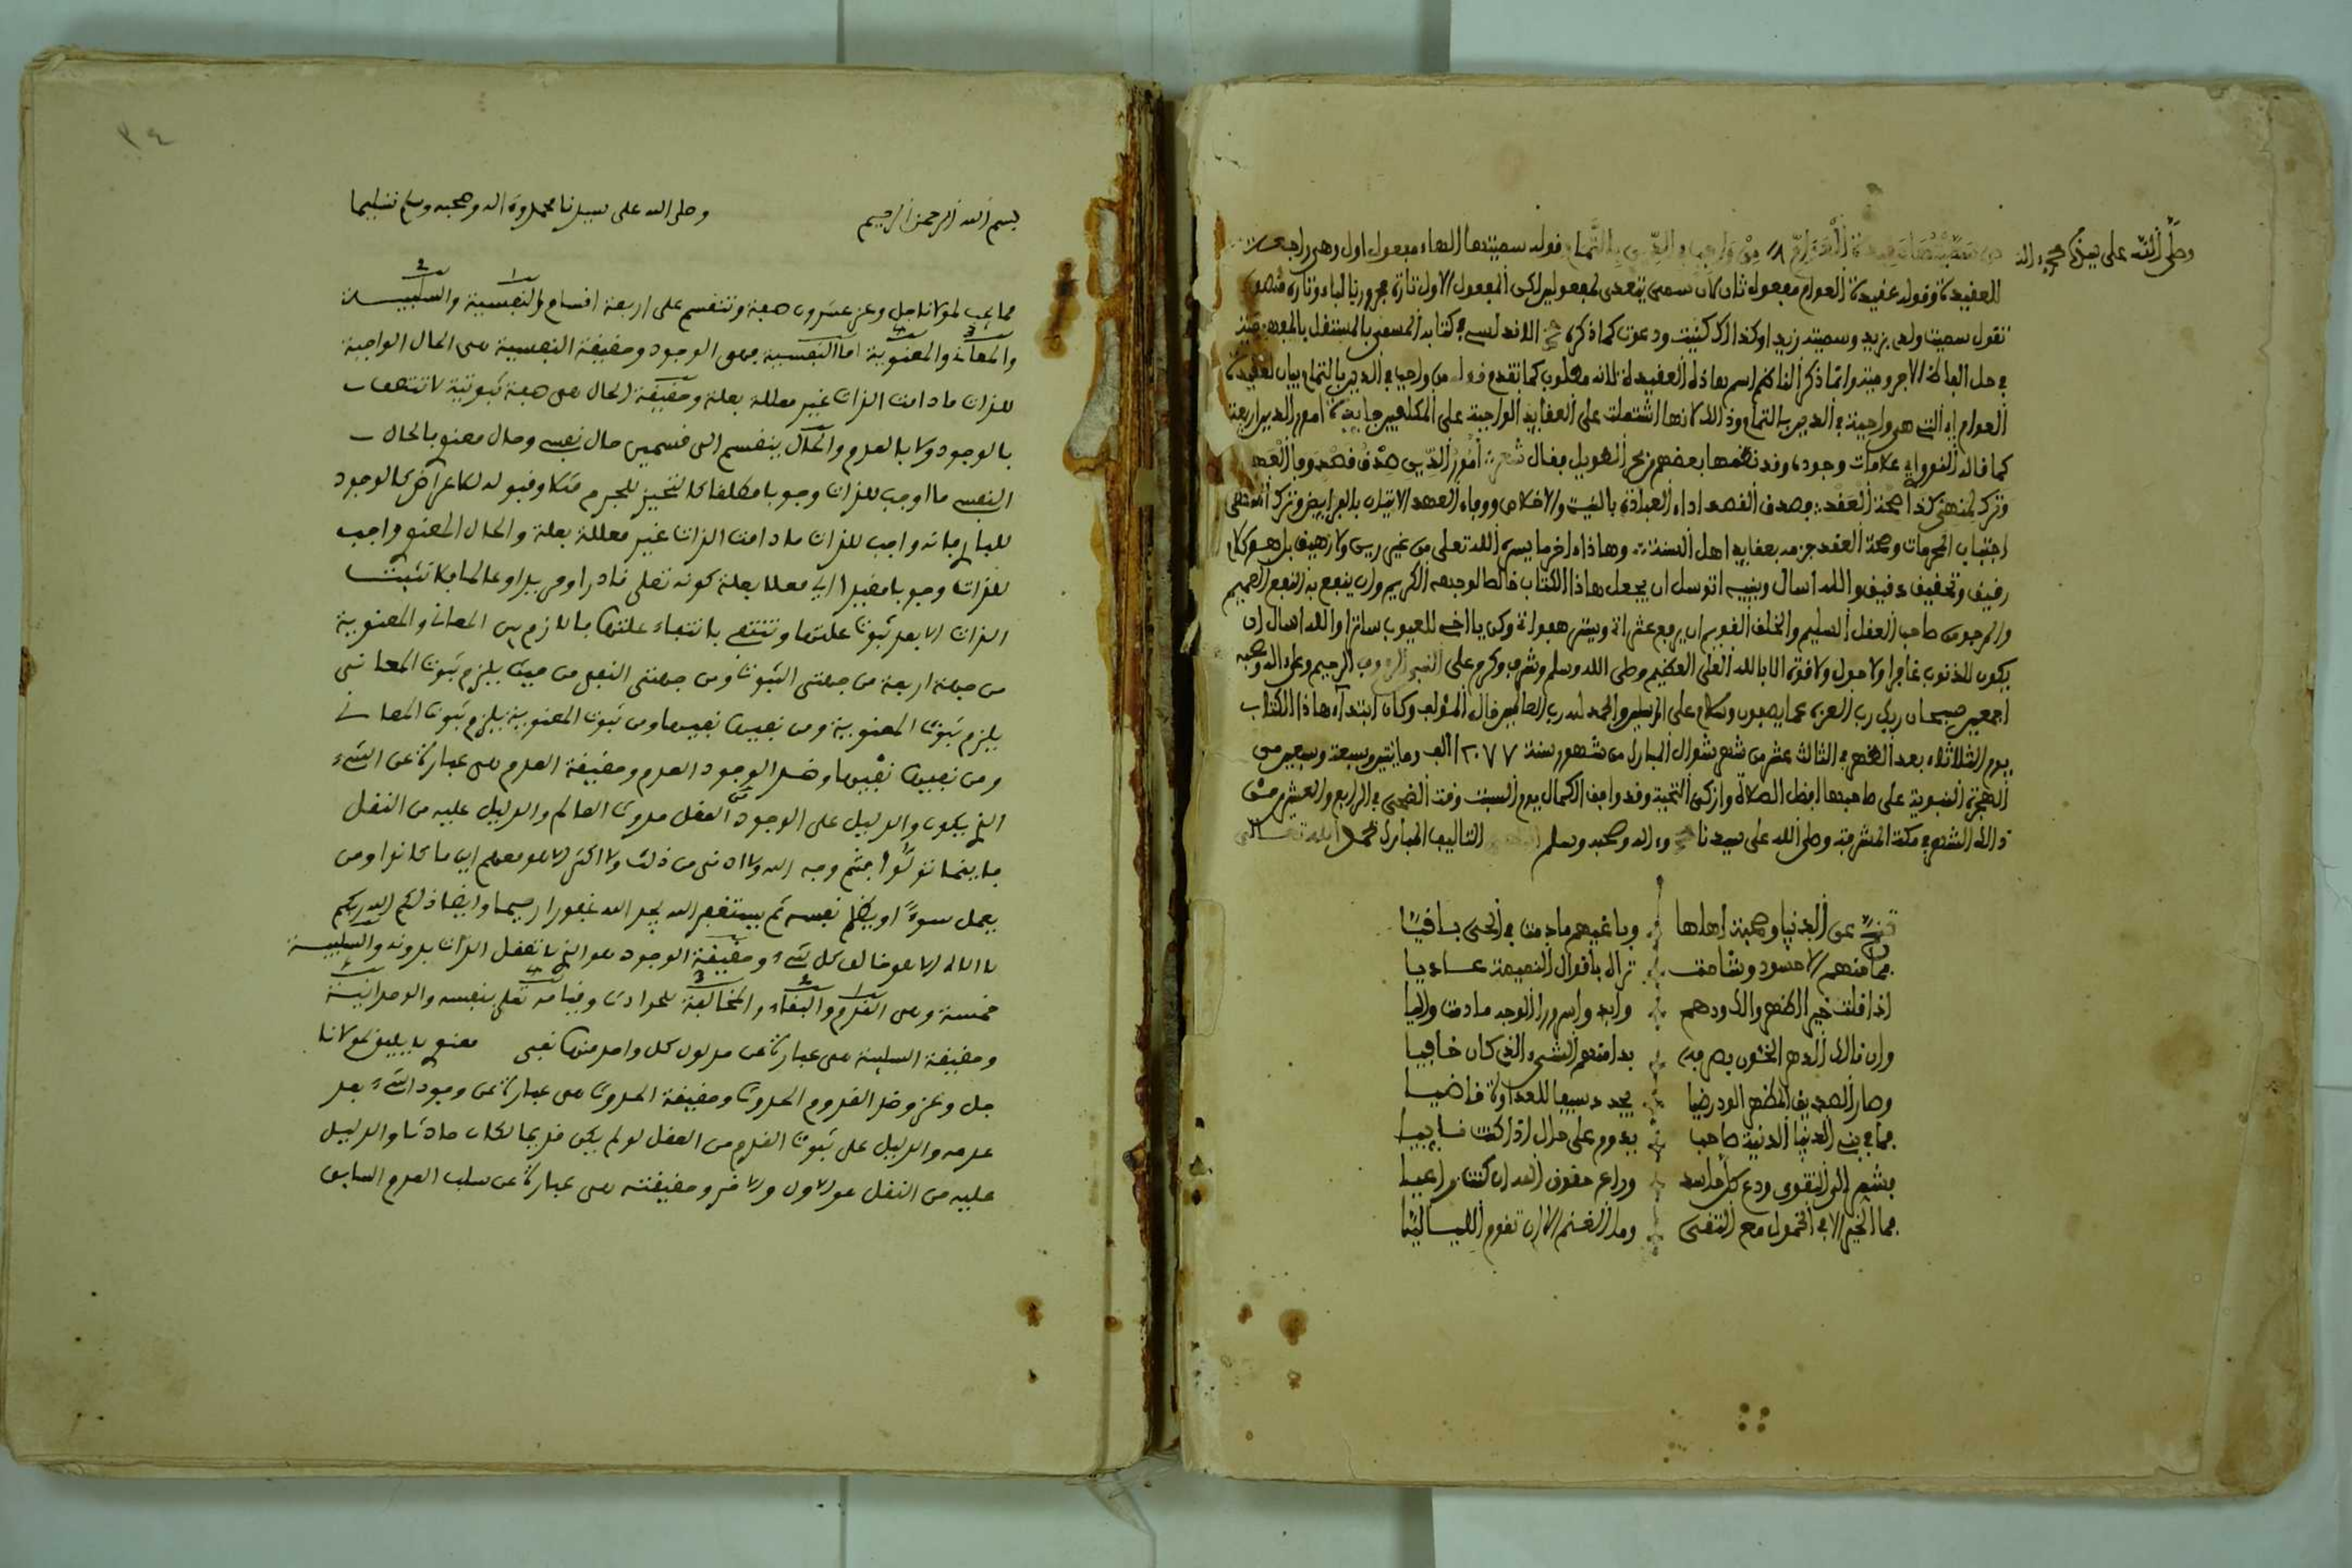 وصلى الله على سيدنا محمد وءاله
سميتها عقيدة العوام من واجب في الدين بالتمام قوله سميتها الهاء مفعول اول وهي راجعة
للعقيدة وقوله عقيدة العوام مفعول ثان لان سمى يتعدى لمفعولين لكن المفعول الاول تارة مجرور بالباء وتارة منصوب
تقول سميت ولدي بزيد وسميته زيدا وكذالك كنيت ودعوت كما ذكره الاندلسي في كتابه المسمى بالمستقل بالمفهومية
في حل الفاظ الاجرومية وانما ذكر الناظم اسم هاذه العقيدة لانه مطلوب كما تقدم قوله من واجب في الدين بالتمام بيان لعقيدة
العوام اي التي هي واجبة في الدين بالتمام وذالك لانها اشتملت على العقايد الواجبة على المكلفين خاتمة امور الدين اربعة
كما قاله النووي علامات وجوده وقد نظمها بعضهم من بحر الطويل فقال شعر امور الدين صدق قصد وفا العهد
وترك لمنهي كذا صحة العقد فصدق القصد اداء العبادة بالنية والاخلاص ووفاء العهد الاتيان بالفرايض وترك المنهي
اجتناب المحرمات وصحة العقد جزمه بعقايد اهل السنة وهاذا اخر ما يسره الله تعلى من غير ريب ولا تزييف بل هو كلام
رقيق وتحقيق دقيق والله اسال وبنبيه اتوسل ان يجعل هاذا الكتاب خالصا لوجهه الكريم وان ينفع به النفع العميم
والمرجو من صاحب العقل السليم والخلق القويم ان يرفع عثراته ويستر هفواته وكن يا اخي للعيوب ساترا والله اسال ان
يكون للذنوب غافرا ولا حول ولا قوة الا بالله العلي العظيم وصلى الله وسلم وشرف وكرم على النبي الرءوف الرحيم وعلى ءاله وصحبه
اجمعين سبحان ربك رب العزة عما يصفون وسلام على المرسلين والحمد لله رب العالمين قال المؤلف وكان ابتداء هاذا الكتاب
يوم الثلاثاء بعد الظهر في الثالث عشر من شهر شوال المبارك من شهور سنة ١٢٧٧ الف ومائتين وسبعة وسبعين من
الهجرة النبوية على صاحبها افضل الصلاة وازكى التحية وقد وافق الكمال يوم السبت وقت الضحى في الرابع والعشرين من
ذالك الشهر في مكة المشرفة وصلى الله على سيدنا محمد وءاله وصحبه وسلم التاليف المبارك بحمد الله تعالى
عن الدنيا وصحبة اهلها وباغيهم ما دمت في الحي باقيا
فما منهم الا حسود وشامت تراك باقوال النميمة عاديا
اذا قلت خيرا اظهروا لك ودهم وابدوا سرورا الوجه ما دمت واليا
وان نالك الدهر الخئون بصرفه بدا منهم الشيء الذي كان خافيا
وصار الصديق المظهر الود رضيا يجدد سيفا للعداوة قاضيا
فما في بني الدنيا الدنية صاحب يدوم على حال اذا كنت نايبا
فشمر الى التقوى ودع كل حاسد وراع حقوق الله ان كنت راعيا
فما الخير الا في الخمول مع التقى وما الغنم الا ان تقوم اللياليا
٣٤
بسم الله الرحمن الرحيم وصلى الله على سيدنا محمد وءاله وصحبه وسلم تسليما
مما يجب لمولانا جل وعز عشرون صفة وتنقسم على اربعة اقسام النفسية والسلبيـة
والمعاني والمعنوية اما النفسية فهي الوجود وحقيقة النفسية هي الحال الواجبة
للذات ما دامت الذات غير معللة بعلة وحقيقة الحال هي صفة ثبوتية لا تتصف
بالوجود ولا بالعدم والحال ينقسم الى قسمين حال نفسي وحال معنوي بالحال
النفسي ما اوجب للذات وجوبا مطلقا كالتحيز للجرم مثلا وقبوله للاعراض كالوجود
للباري فانه واجب للذات ما دامت الذات غير معللة بعلة والحال المعنوي واجب
للذات وجوبا مقيدا اي معللا بعلة كونه تعلى قادرا ومريدا وعالما فلا تثبت
الذات الا بعد ثبوت علتها وتنتفي بانتفاء علتها فاللازم بين المعاني والمعنوية
من جهة اربعة من جهتي الثبوت ومن جهتي النفي من حيث يلزم ثبوت المعاني
يلزم ثبوت المعنوية ومن نفيها نفيها ومن ثبوت المعنوية يلزم ثبوت المعاني
ومن نفيها نفيها وضد الوجود العدم وحقيقة العدم هي عبارة عن الشيء
الذي يكون والدليل على الوجود من العقل حدوث العالم والدليل عليه من النقل
فاينما تولوا فثم وجه الله ولا ادنى من ذلك ولا اكثر الا هو معهم اين ما كانوا ومن
يعمل سوءا او يظلم نفسه ثم يستغفر الله يجد الله غفورا رحيما وايضا ذلكم الله ربكم
لا اله الا هو خالق كل شيء وحقيقة الوجود هو الذي لا تعقل الذات بدونه والسلبية
خمسة وهي القدم والبقاء والمخالفة للحوادث وقيامه تعلى بنفسه والوحدانية
وحقيقة السلبية هي عبارة عن مدلول كل واحد منها نفي معنى لا يليق بمولانا
جل وعز وضد القدوم الحدوث وحقيقة الحدوث هي عبارة عن وجود الشيء بعد
عدمه والدليل على ثبوت القدم من العقل لو لم يكن قديما لكان حادثا والدليل
عليه من النقل هو الاول والاخر وحقيقته هي عبارة عن سلب العدم السابق